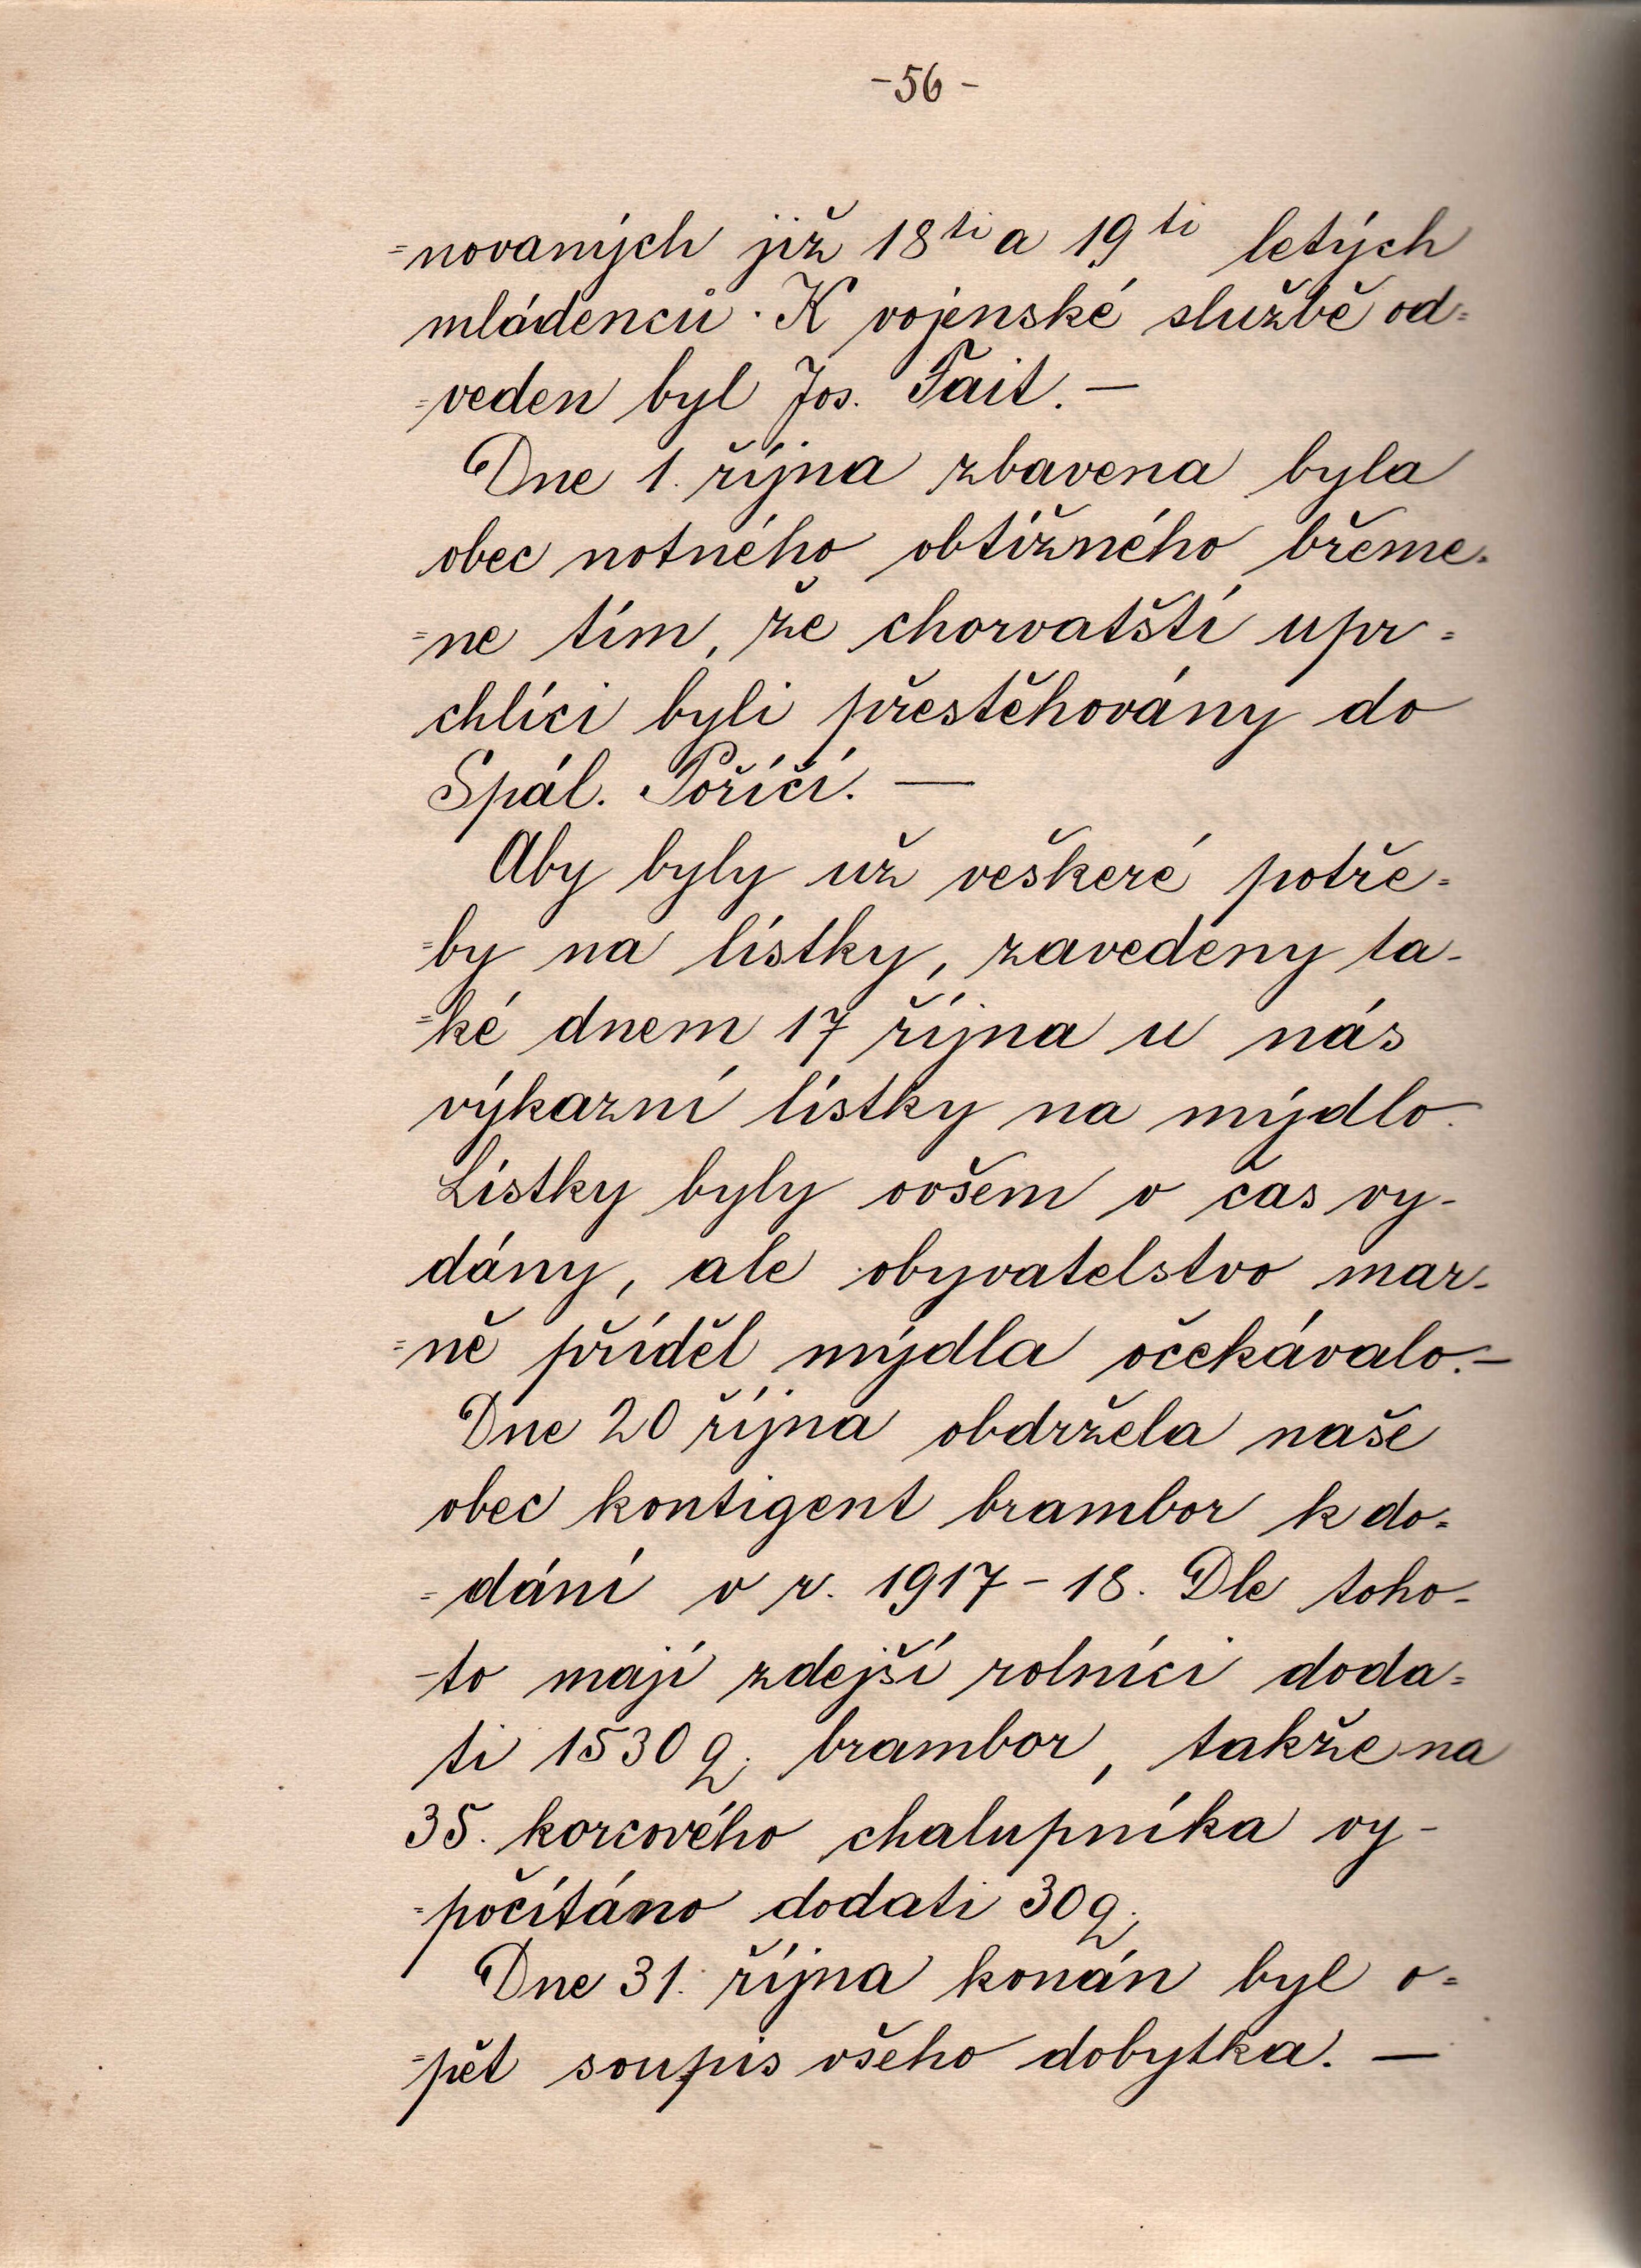 -56-
=novaných již 18ti a 19ti letých
mládenců. K vojenské službě od=
=veden byl Jos. Fait. —
Dne 1. října zbavena byla
obec notného obtížného břeme=
=ne tím, že chorvatští upr=
chlíci byli přestěhovány do
Spál. Poříčí. —
Aby byly už veškeré potře=
=by na lístky, zavedeny ta-
=ké dnem 17 října u nás
výkazní lístky na mýdlo.
Lístky byly ovšem v čas vy-
dány, ale obyvatelstvo mar-
=ně příděl mýdla očekávalo. —
Dne 20 října obdržela naše
obec kontigent brambor k do=
=dání v r. 1917-18. Dle toho-
-to mají zdejší rolníci doda=
ti 1530 q. brambor, takže na
35. korcového chalupníka vy-
=počítáno dodati 30 q.
Dne 31. října konán byl o=
=pět soupis všeho dobytka. —